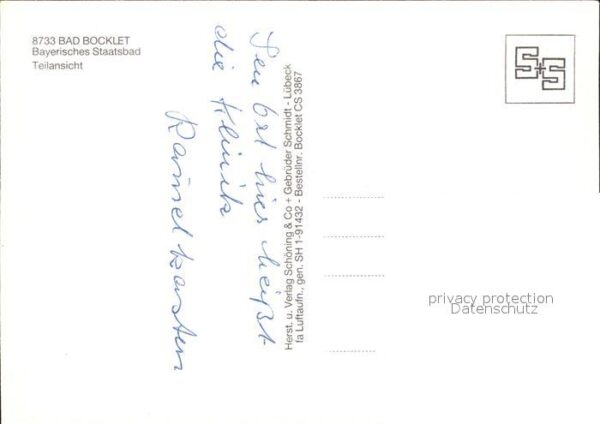 8733 BAD BOCKLET
Bayerisches Staatsbad
Teilansicht
Ort hier heißt
die Klinik
Herst. u. Verlag Schöning & Co + Gebrüder Schmidt - Lübeck
fa Luftaufn., gen. SH 1-91432 - Bestellnr. Bocklet CS 3867
S+S
privacy protection
Datenschutz